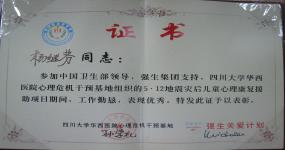 证书
同志：
参加中国卫生部领导、强生集团支持、四川大学华西
医院心理危机干预基地组织的5·12地震灾后儿童心理康复援
助项目期间，工作勤恳，表现优秀，特发此证予以表彰。
四川大学华西医院心理危机干预基地
强生关爱计划